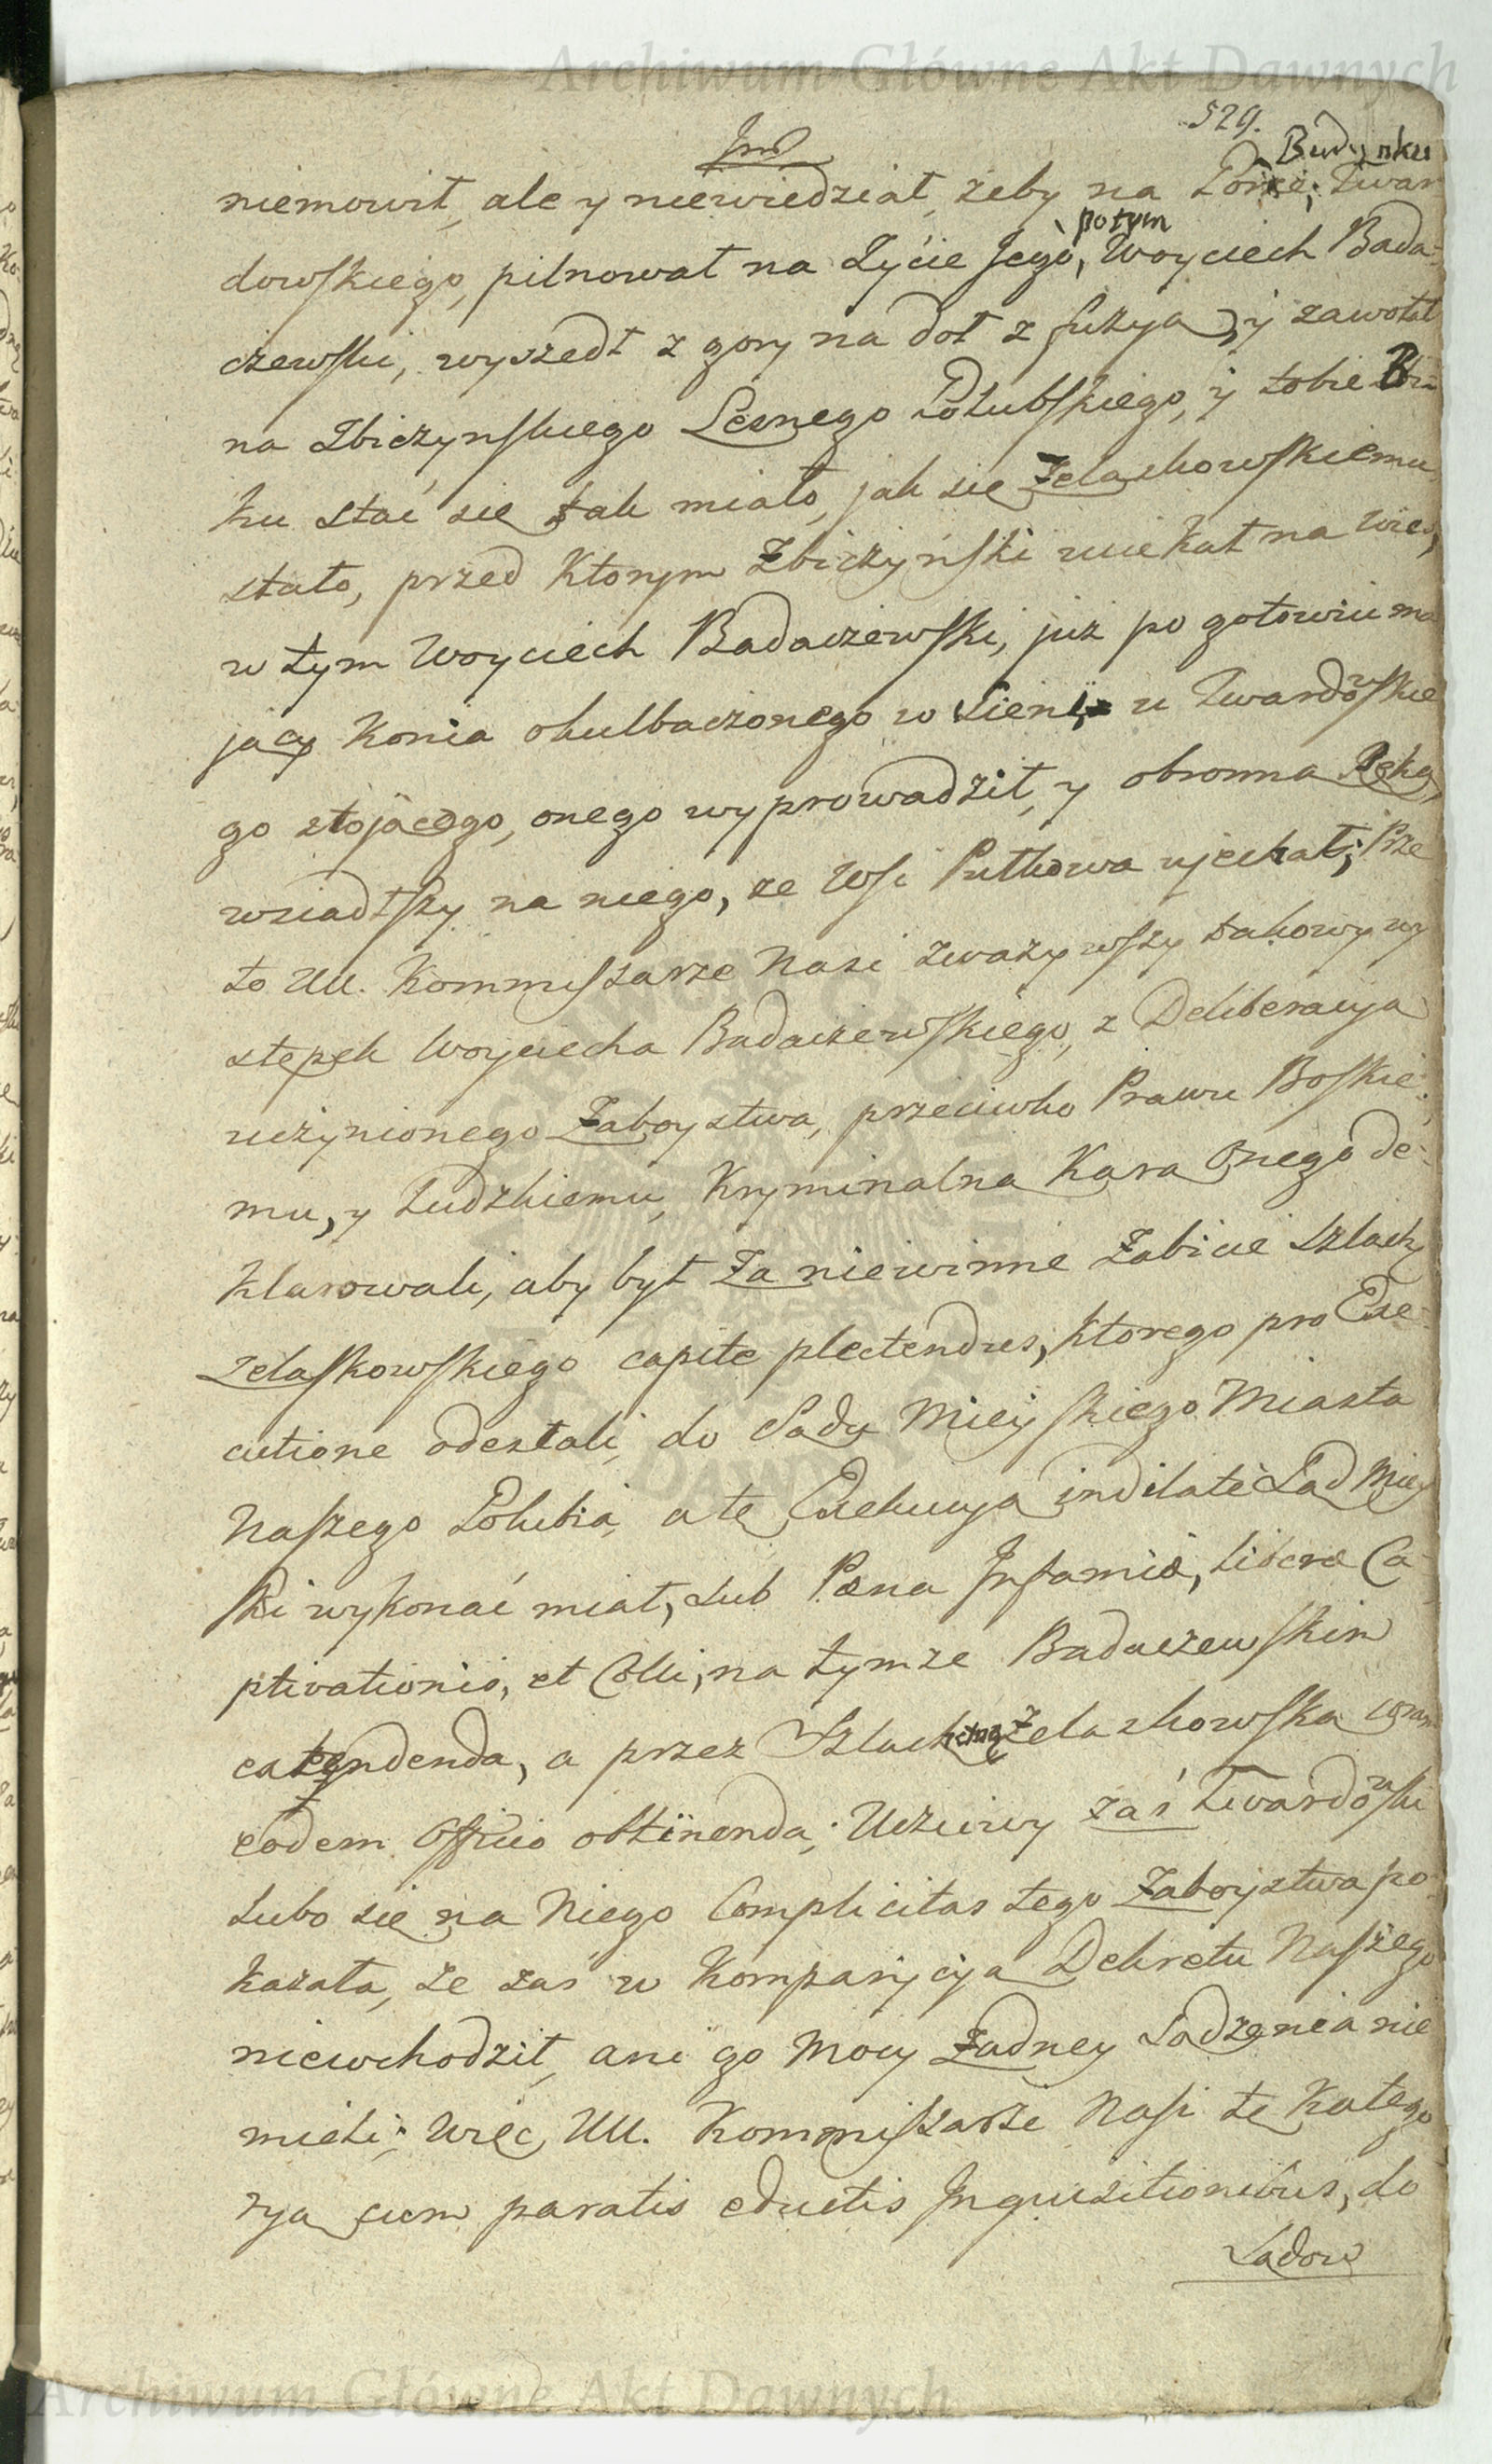 Archiwum Główne Akt Dawnych
529.
Budynku
niemowił, ale y niewiedział, żeby na Górze, Twar
potym
dowskiego, pilnował na Zycie Jego, Woyciech Bada-
czewski, wyszedł z gory na doł z fuzya, y zawołał
na Zbiczynskiego Lesnego Golubskiego, y tobie
ku stać się tak miało, jak się Zelaskowskiemu
stało, przed Ktorym Zbiczyński uciekał na wies,
w tym Woyciech Badaczewski, juz po gotowiu ma
jący Konia okulbaczonego w Sieni u Twardowskie
go stojącego, onego wyprowadził, y obronna Ręką,
wsiadłszy na niego, ze Wsi Putkowa ujechał; Prze
to UU. Kommissarze Nasi zwazywszy takowy wy
stępek Woyciecha Badaczewskiego, z Deliberacyą
uczynionego Zaboystwa, przeciwko Prawu Boskie-
mu, y Ludzkiemu, Kryminalna Kara Onego de-
klarowali, aby był Za niewinne Zabicie Szlach.
Zelaskowskiego capite plectendus, ktorego pro Exe-
cutione odesłali, do Sądu Mieyskiego Miasta
Naszego Golubia, a tę Exekucyą indilatè Sąd Miey
ski wykonać miał, lub Pæna Infamiæ, liberæ Ca-
ptivationis, et Colli, na tymze Badaczewskim
extendenda, a przez Szlachetną Zelaskowską coram
eodem Officio obtinenda; Uczciwy zaś Twardowski
Lubo się na Niego Complicitas tego Zaboystwa po-
kazała, ze zas w Komparycyą Dekretu Naszego
niewchodził, ani go Mocy Zadney Sądzenia nie
mieli; więc UU. Kommissarze Nasi tę Katego
ryą cum paratis eductis Inquisitionibus, do
Sądow
Archiwum Główne Akt Dawnych